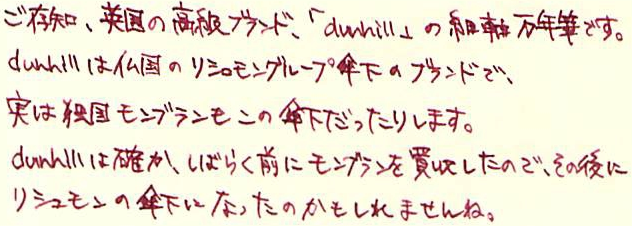 ご存知、英国の高級ブランド、「dunhill」の細軸万年筆です。
dunhillは仏国のリシュモングループ傘下のブランドで、
実は独国モンブランもこの傘下だったりします。
dunhillは確か、しばらく前にモンブランを買収したので、その後に
リシュモンの傘下になったのかもしれませんね。